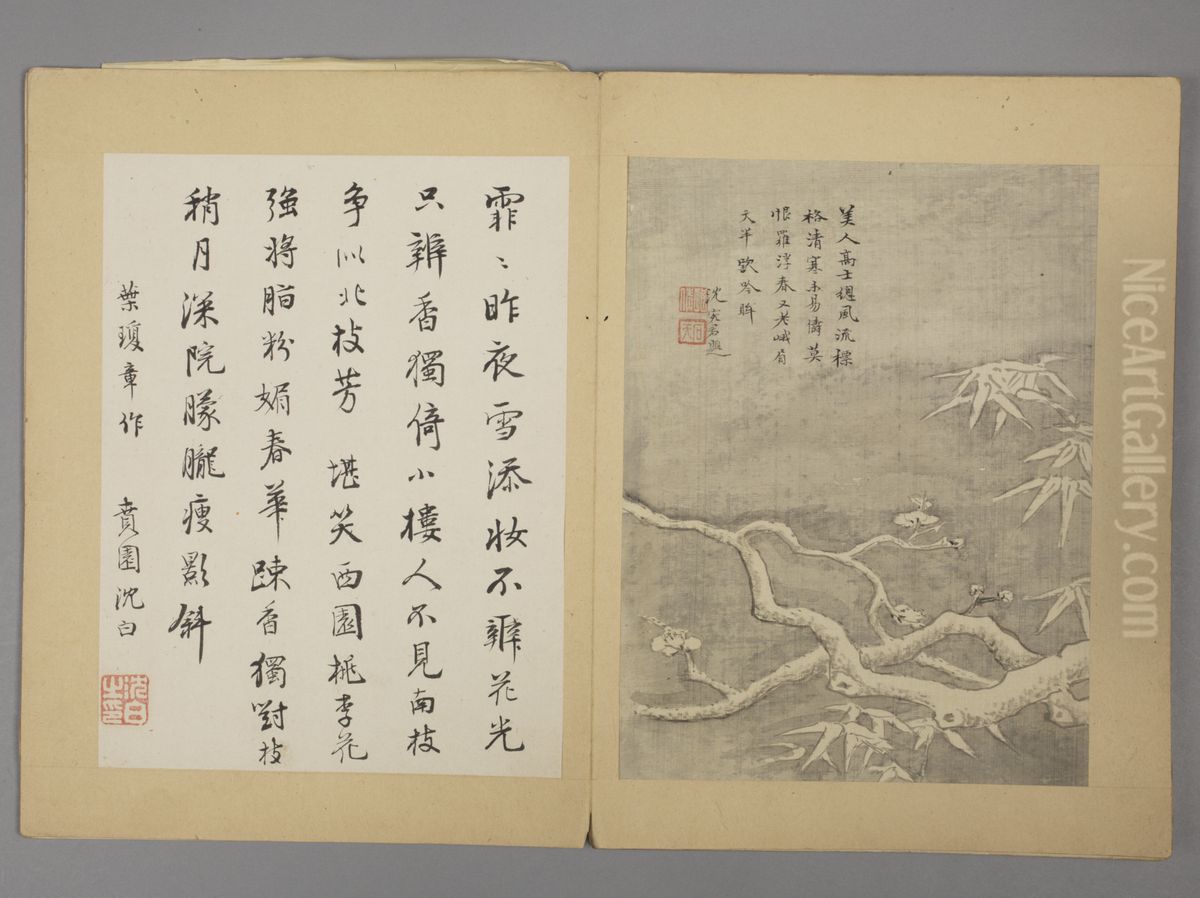 美人高士總風流標
格清寒未易儔莫
恨羅浮春又老峨眉
天半吟眸
沈題
霏〻昨夜雪添妝不辨花光
只辨香獨倚小樓人不見南枝
争似北枝芳 堪笑西園桃李花
強將脂粉媚春華踈香獨對枝
稍月深院朦朧瘦影斜
葉瓊章作 賁園沈白
沈白之印
NiceArtGallery.com